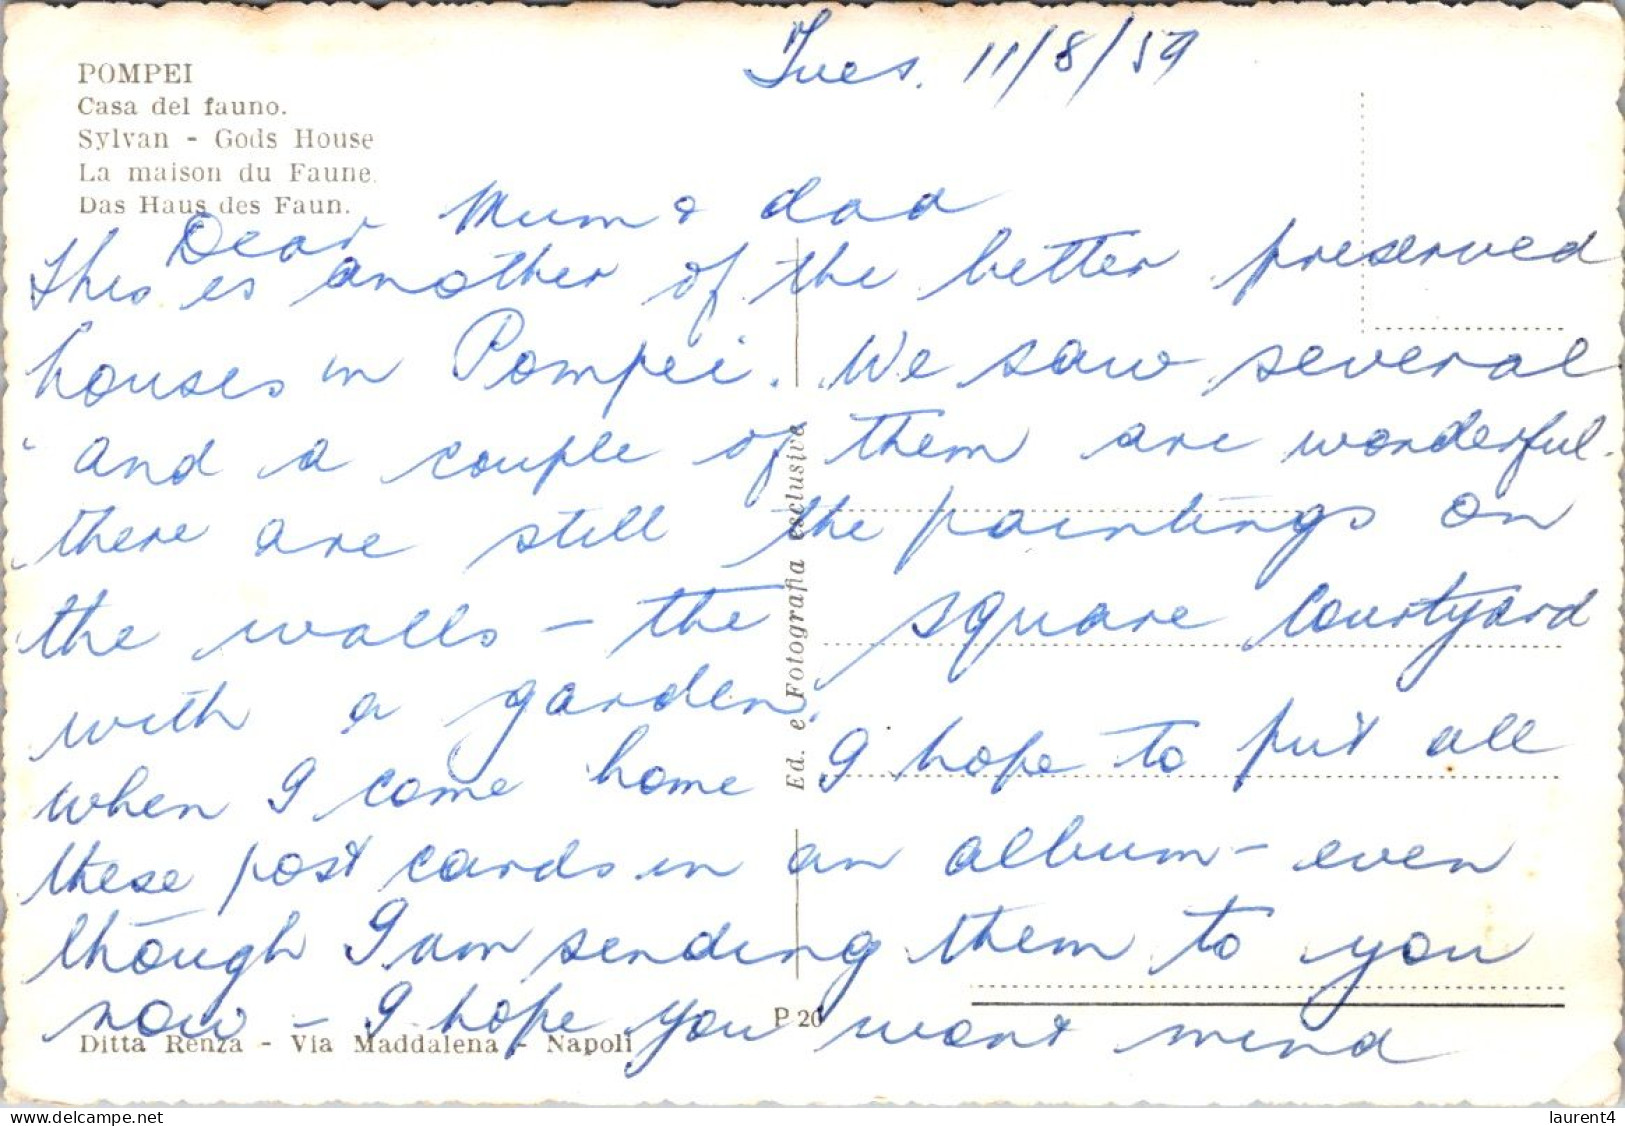 Tues. 11/8/59
POMPEI
Casa del fauno.
Sylvan - Gods House
La maison du Faune.
Das Haus des Faun.
Dear Mum & dad
This is another of the better preserved
houses in Pompei. We saw several
and a couple of them are wonderful.
there are still the paintings on
the walls - the square courtyard
with a garden.
when I come home I hope to put all
these post cards in an album - even
though I am sending them to you
now - I hope you wont mind
Ed. e Fotografia esclusiva
P 20
Ditta Renza - Via Maddalena - Napoli
delcampe.net
laurent4